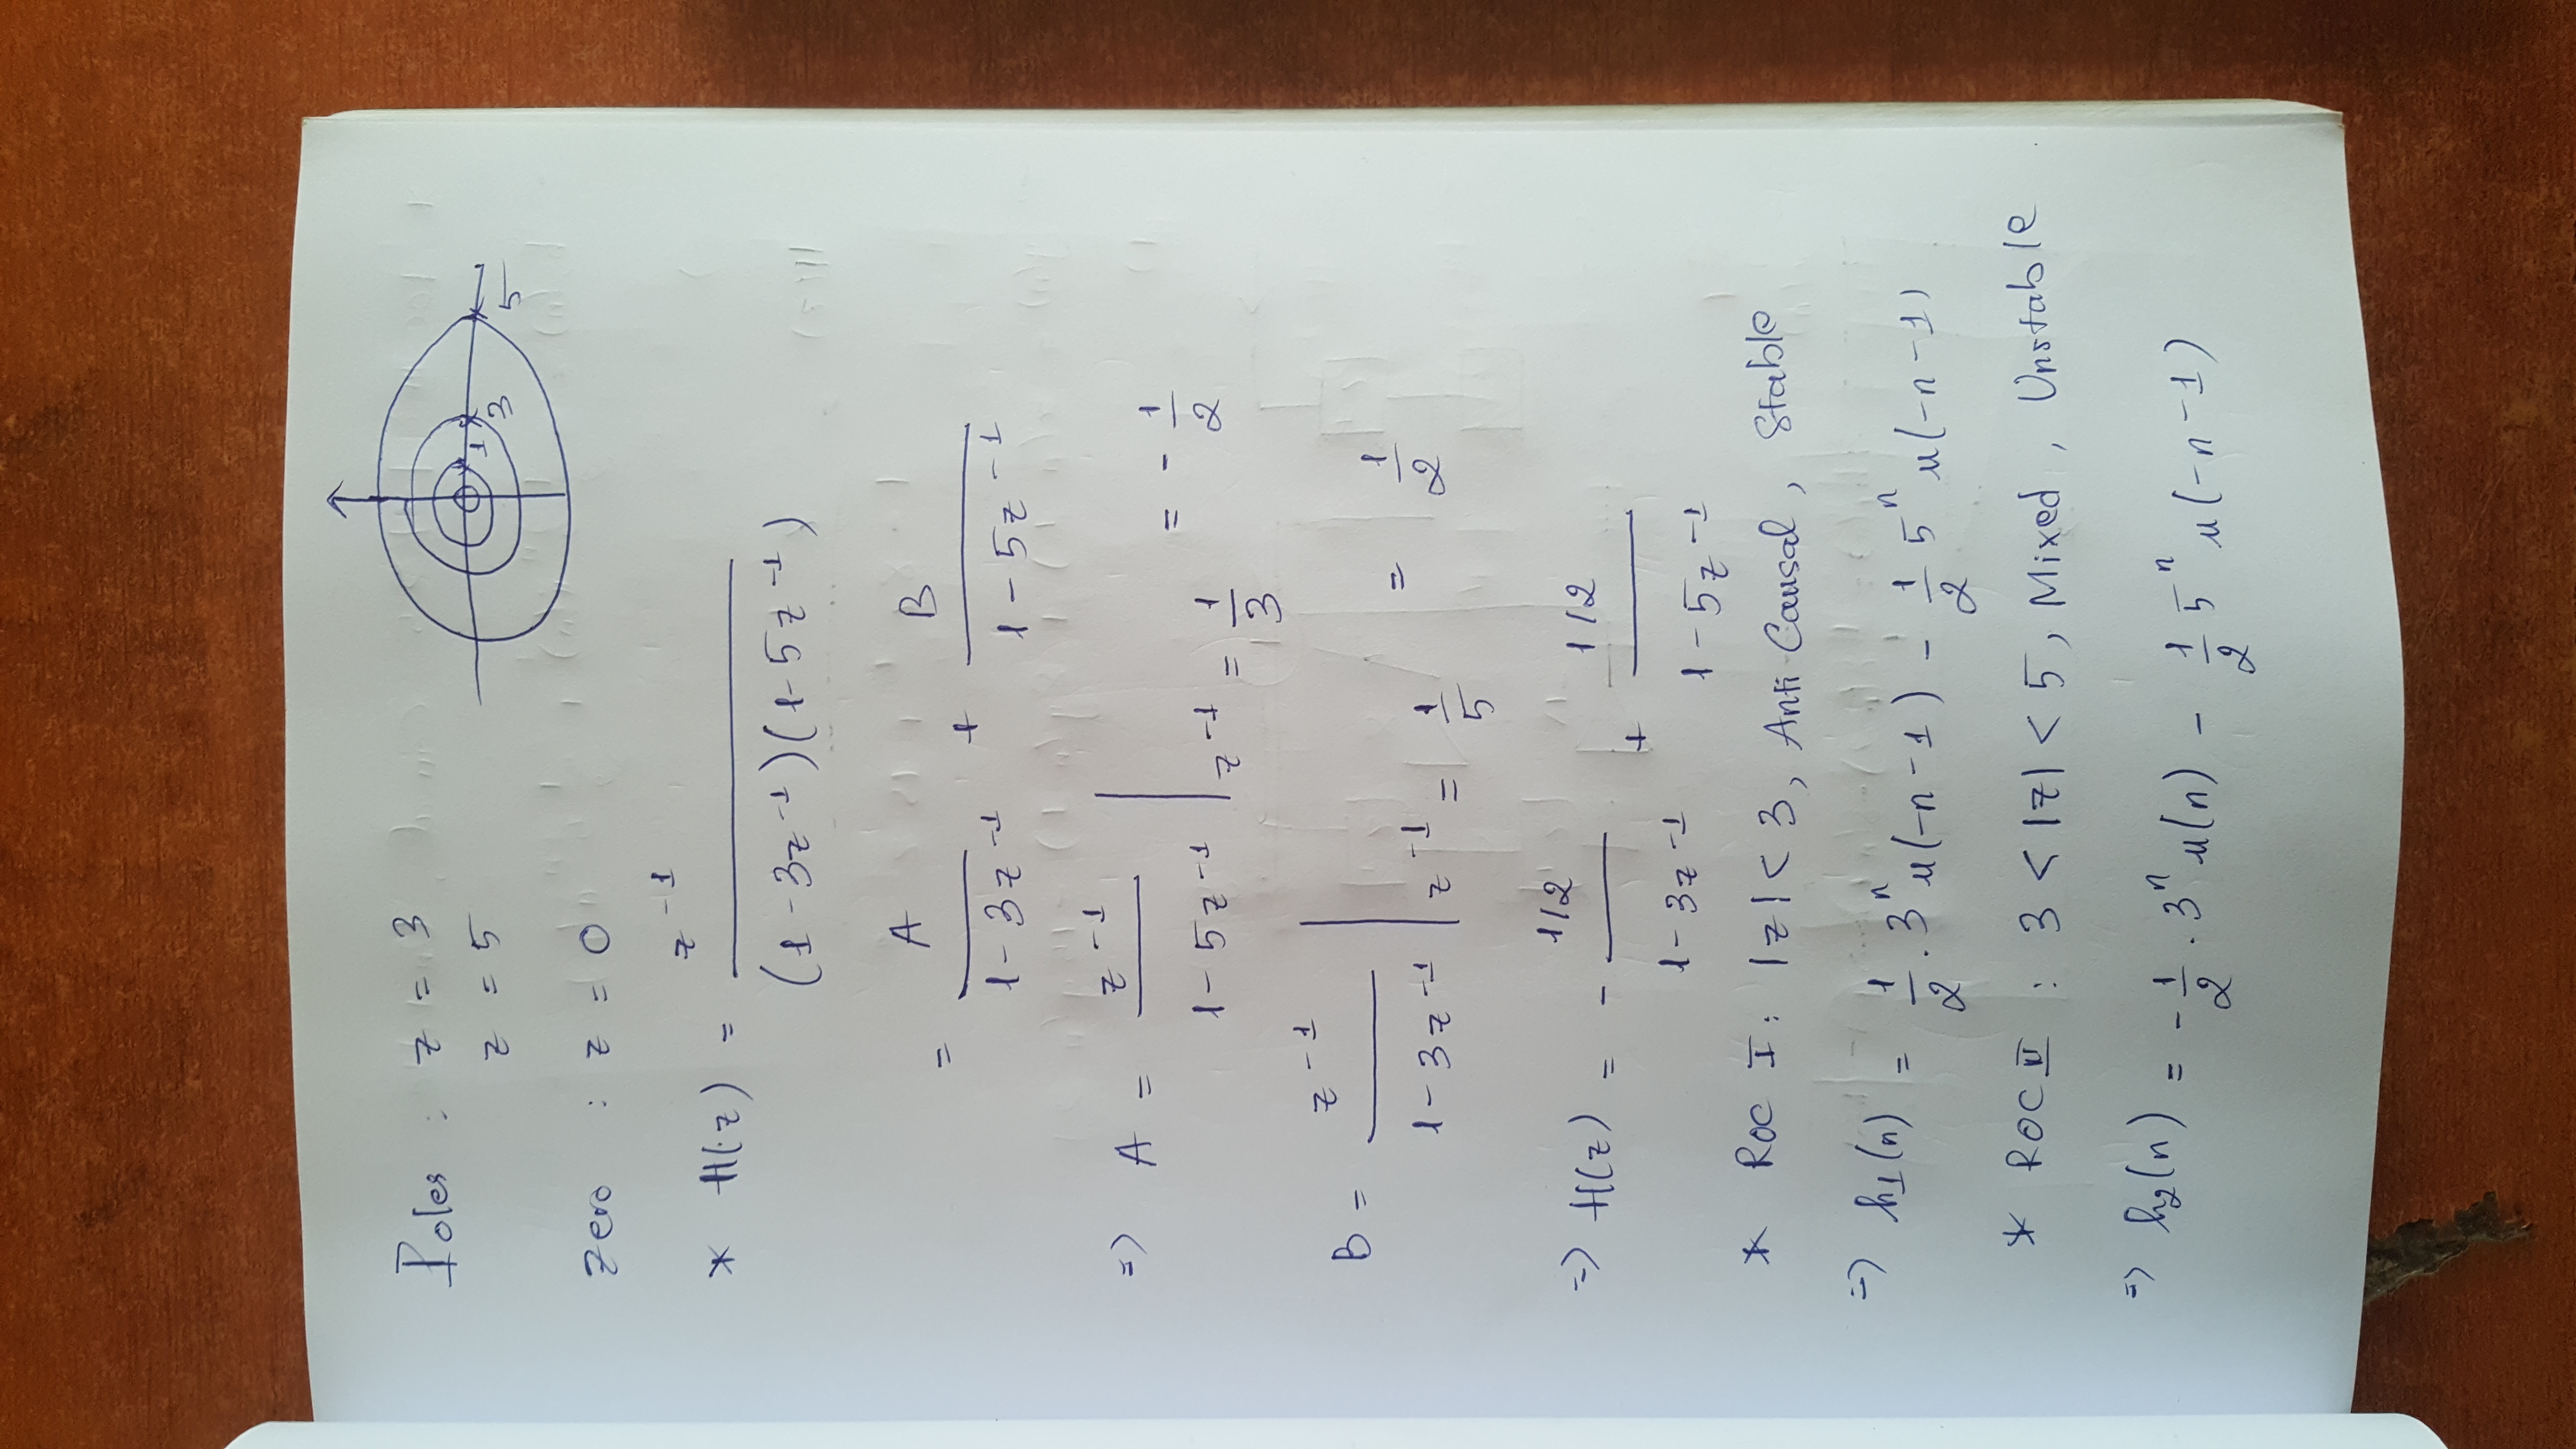 Poles : z = 3
z = 5
1 3 5
zero : z = 0
* H(z) = z^-1 / (1 - 3z^-1)(1 - 5z^-1)
= A / (1 - 3z^-1) + B / (1 - 5z^-1)
=> A = z^-1 / (1 - 5z^-1) | z^-1 = 1/3 = - 1/2
B = z^-1 / (1 - 3z^-1) | z^-1 = 1/5 = 1/2
=> H(z) = - 1/2 / (1 - 3z^-1) + 1/2 / (1 - 5z^-1)
* ROC I : |z| < 3, Anti Causal, Stable
=> h1(n) = 1/2 . 3^n u(-n-1) - 1/2 5^n u(-n-1)
* ROC II : 3 < |z| < 5, Mixed, Unstable
=> h2(n) = - 1/2 . 3^n u(n) - 1/2 5^n u(-n-1)